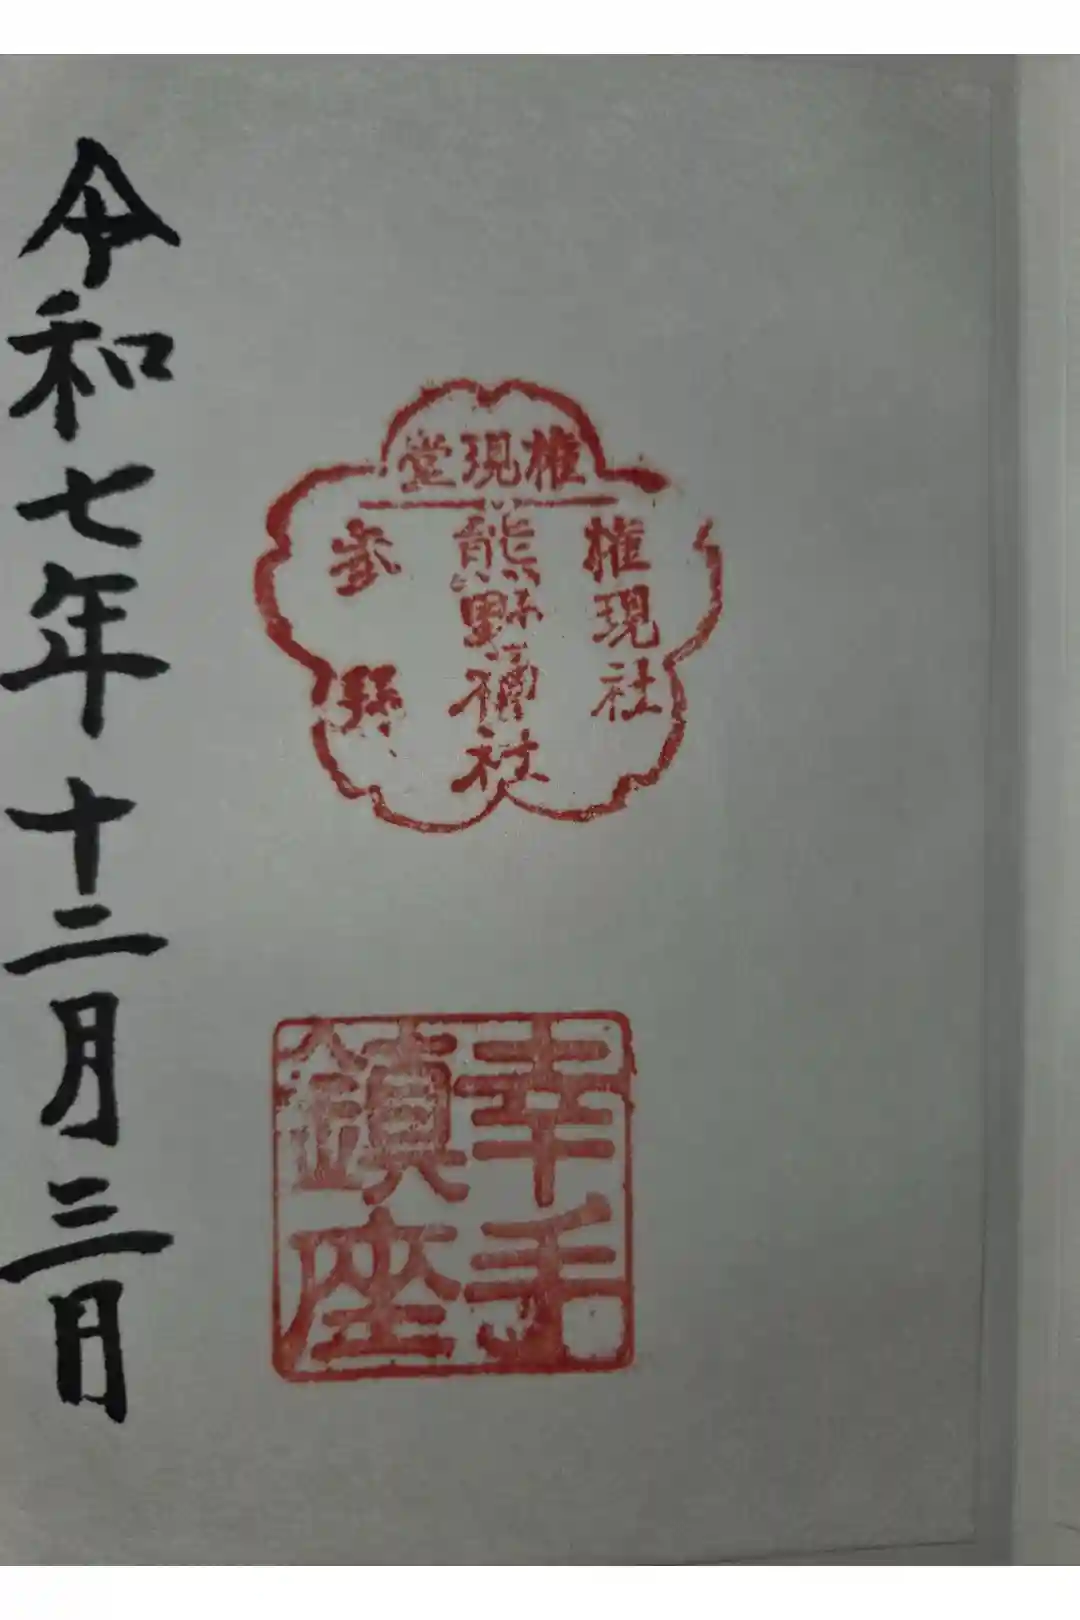 権現堂
権現社
熊野神社
参
幸手
鎮座
令和七年十二月三日